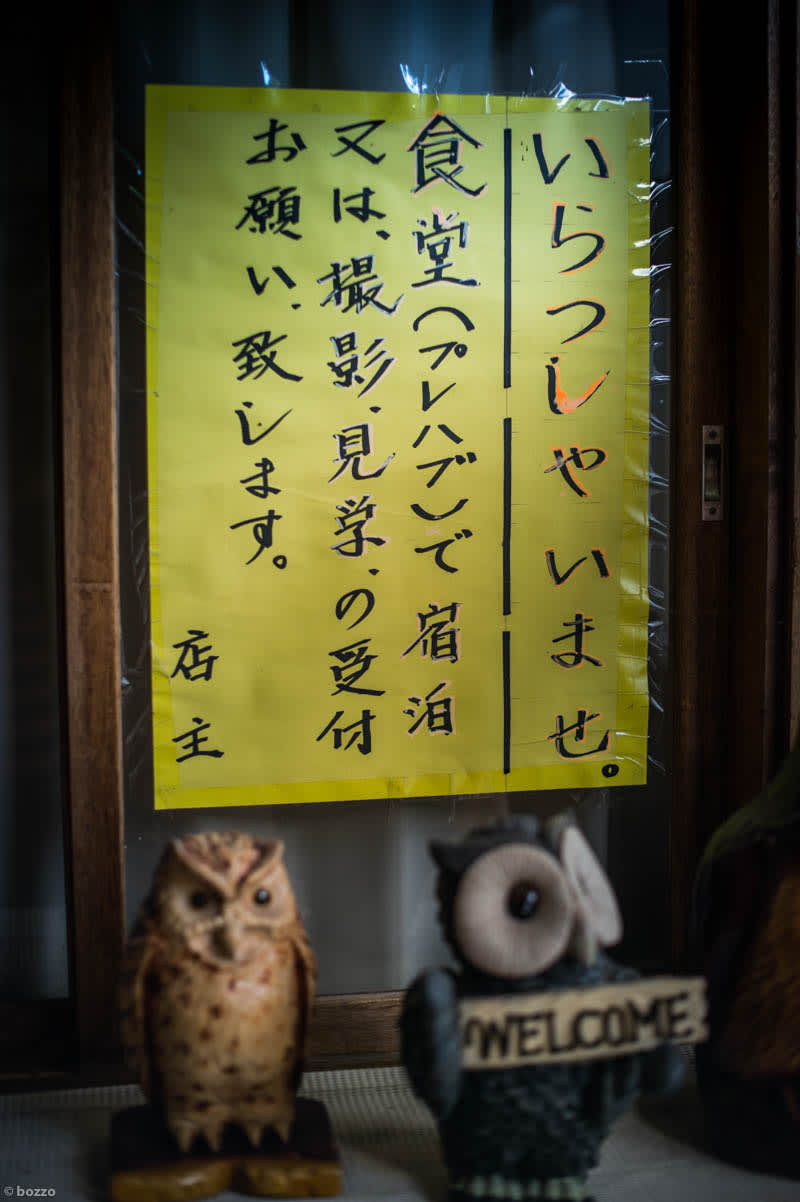 いらつしやいませ。
食堂(プレハブ)で宿泊
又は、撮影、見学、の受付
お願い、致します。
店主
WELCOME
© bozzo